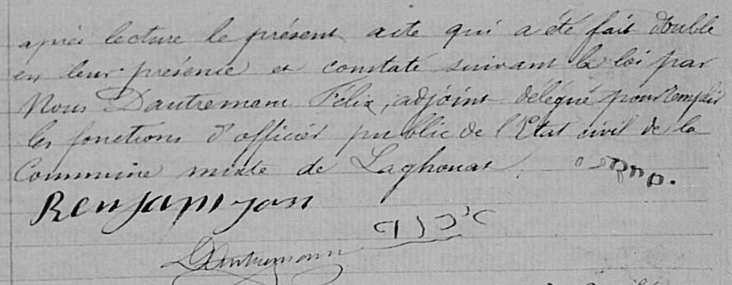 après lecture le présent acte qui a été fait double
en leur présence et constaté suivant la loi par
Nous Dautremann, Félix, adjoint délégué pour remplir
les fonctions d'officier public de l'Etat civil de la
Commune mixte de Laghouat.
Benjamijon
Dautremann